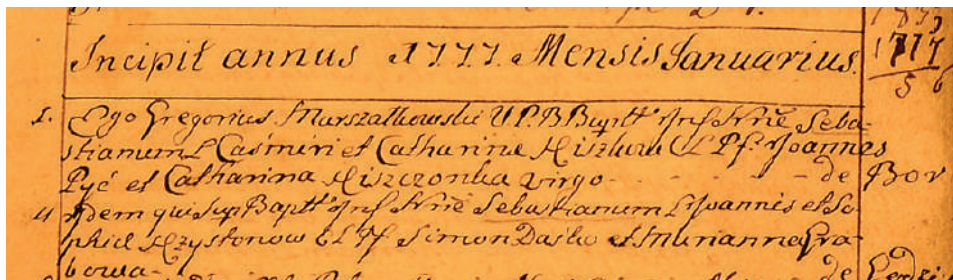 Incipit annus 1777. Mensis Januarius.
1777
5 6
1. Ego Gregorius Marszałkowski V P. B Bapttt Inf Nne Seba-
stianum L Casimiri et Catharinæ C L Pf. Joannes
Pyć et Catharina virgo - - - - de Bor
4 Idem qui sup Bapt Inf Nne Sebastianum L Joannis et So-
phiæ C L Pf Simon Daśko et Marianna Gra-
bowa - de